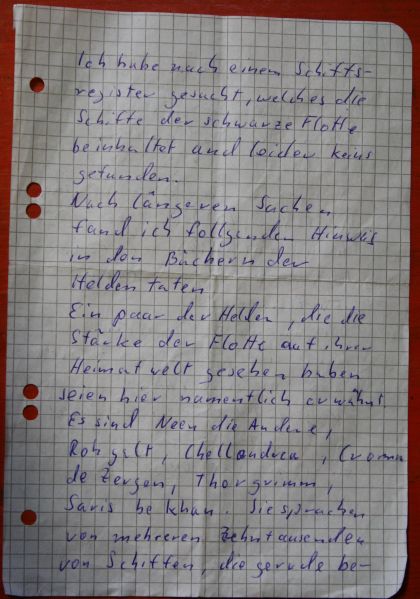 Ich habe nach einem Schiffs-
register gesucht, welches die
Schiffe der schwarze Flotte
beinhaltet und leider keins
gefunden.
Nach längeren Suchen
fand ich follgenden Hinweis
in den Büchern der
Heldentaten
Ein paar der Helden, die die
Stärke der Flotte auf ihrer
Heimatwelt gesehen haben
seien hier namentlich erwähnt.
Es sind Neen die Andere,
Rohgalt, Chellandra,
de Zergen, Thorgrimm,
Saris be khan. Sie sprachen
von mehreren Zehntausenden
von Schiffen, die gerade be-